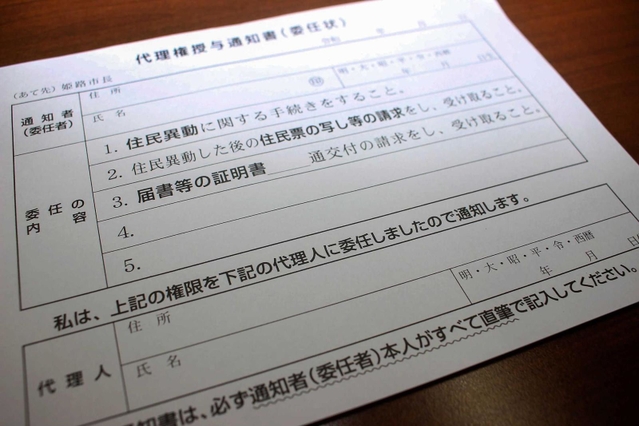 代理権授与通知書(委任状)
令和 年 月 日
(あて先)姫路市長
通知者
(委任者)
住所
氏名
㊞
明・大・昭・平・令・西暦
年 月 日生
委任の
内容
1. 住民異動に関する手続きをすること。
2. 住民異動した後の住民票の写し等の請求をし、受け取ること。
3. 届書等の証明書 通交付の請求をし、受け取ること。
4.
5.
私は、上記の権限を下記の代理人に委任しましたので通知します。
代理人
住所
氏名
明・大・昭・平・令・西暦
年 月 日
知書は、必ず通知者(委任者)本人がすべて直筆で記入してください。